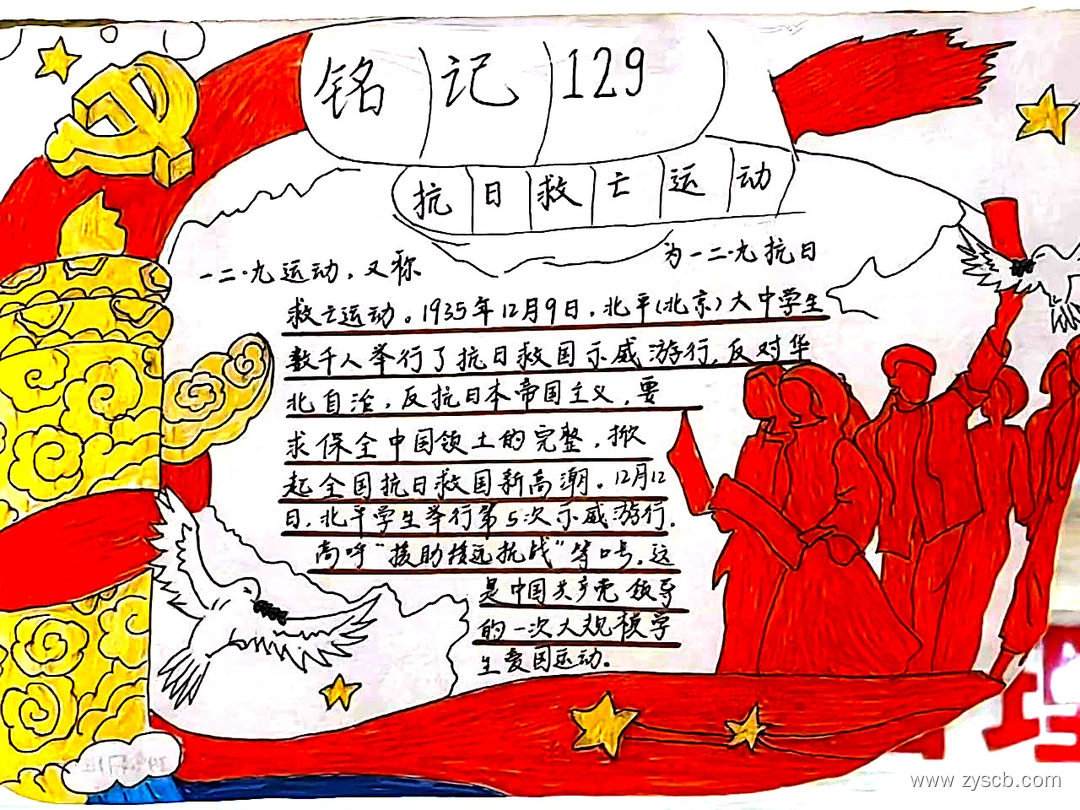 铭记129
抗日救亡运动
一二·九运动，又称 为一二·九抗日
救亡运动。1935年12月9日，北平(北京)大中学生
数千人举行了抗日救国示威游行，反对华
北自治，反抗日本帝国主义，要
求保全中国领土的完整，掀
起全国抗日救国新高潮。12月12
日，北平学生举行第5次示威游行，
高呼“援助绥远抗战”等口号，这
是中国共产党领导
的一次大规模学
生爱国运动。
www.zyscb.com